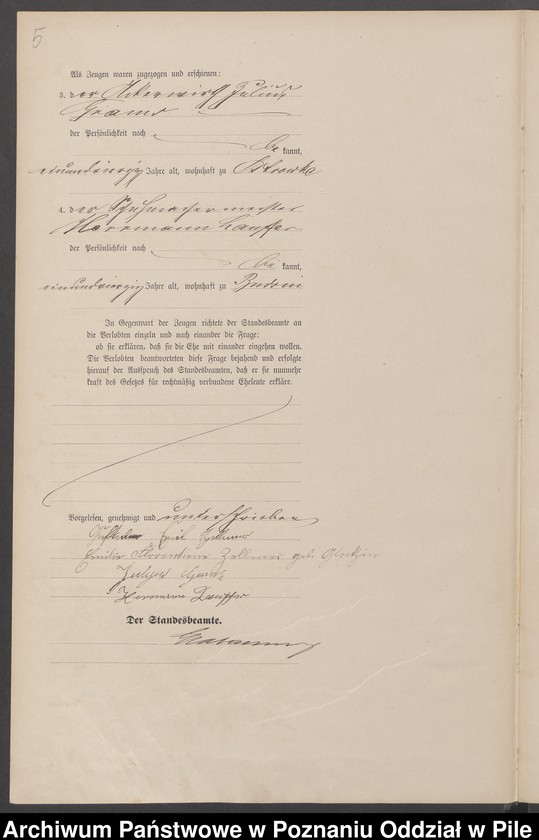 5
Als Zeugen waren zugezogen und erschienen:
3. der Ackerwirth Julius
der Persönlichkeit nach
be kannt,
einundvierzig Jahre alt, wohnhaft zu
4. der Schuhmachermeister
Herrmann
der Persönlichkeit nach
be kannt,
einundvierzig Jahre alt, wohnhaft zu
In Gegenwart der Zeugen richtete der Standesbeamte an
die Verlobten einzeln und nach einander die Frage:
ob sie erklären, daß sie die Ehe mit einander eingehen wollen.
Die Verlobten beantworteten diese Frage bejahend und erfolgte
hierauf der Ausspruch des Standesbeamten, daß er sie nunmehr
kraft des Gesetzes für rechtmäßig verbundene Eheleute erkläre.
Vorgelesen, genehmigt und unterschrieben
Emil
Emilie Florentine Zellmer geb.
Hermann
Der Standesbeamte.
Archiwum Państwowe w Poznaniu Oddział w Pile